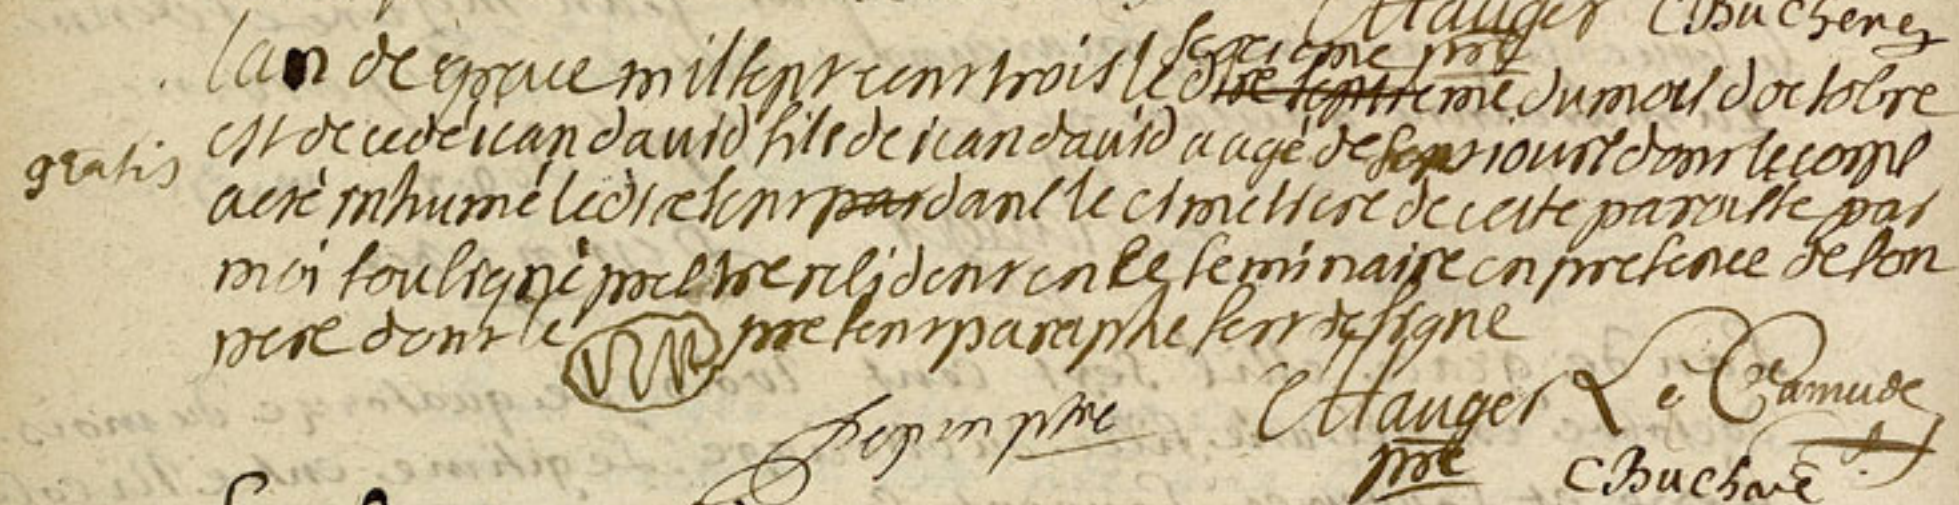 CHauger C Bucherie
seizieme pre
lan de grace mil sept cent trois le dixe septieme du mois doctobre
gratis
est decedé iean david fils de iean david aagé de sept iours dont le corps
a eté inhumé le dixesept par dans le cimetiere de cette paroisse par
moi soussigné prestre resident en le seminaire en presence de son
pere dont le present paraphe sert de signe
ptre CHauger Le Cramude
pre C Bucharie